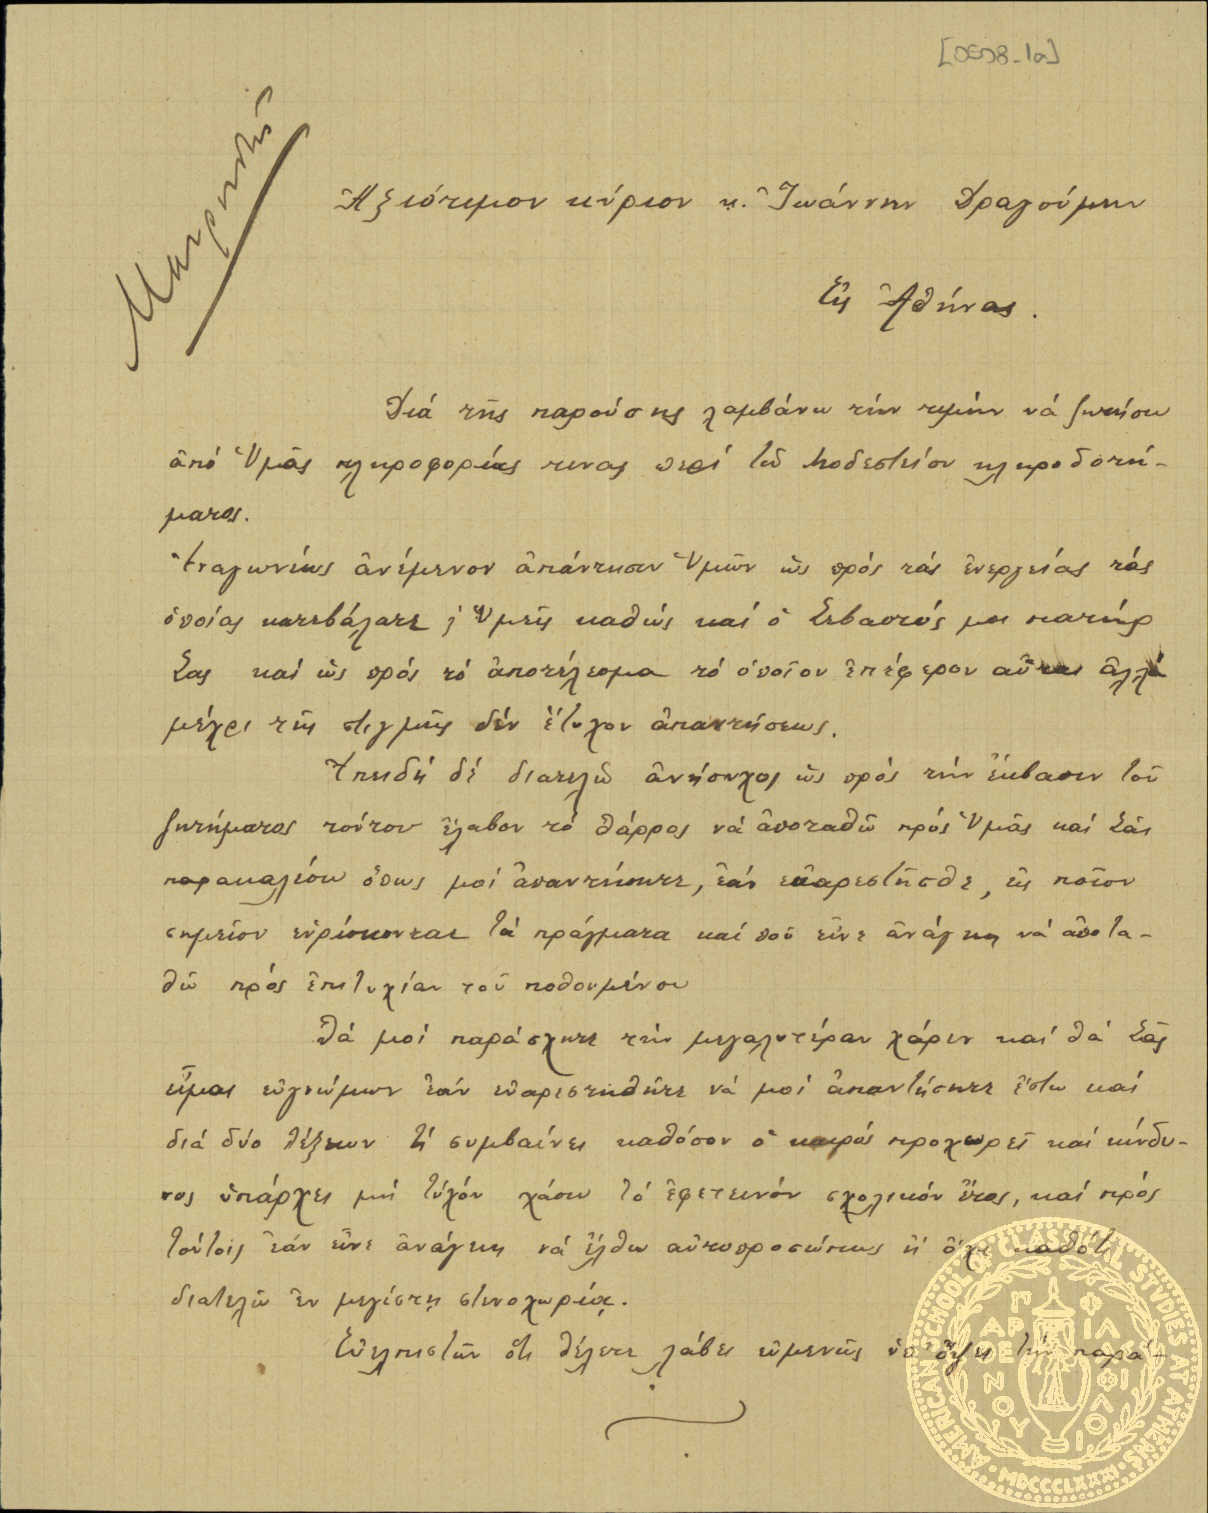 [ΟΕΟ8-1a]
Ἀξιότιμον κύριον κ. Ἰωάννην Δραγούμην
Εἰς Ἀθήνας.
Διά τῆς παρούσης λαμβάνω τήν τιμήν νά ζητήσω
ἀπό Ὑμᾶς πληροφορίας τινας περί τοῦ Μοδεστείου κληροδοτή-
ματος.
Ἐναγωνίως ἀνέμενον ἀπάντησιν Ὑμῶν ὡς πρός τάς ἐνεργείας τάς
ὁποίας κατεβάλατε Ὑμεῖς καθώς καί ὁ Σεβαστός μοι πατήρ
Σας καί ὡς πρός τό ἀποτέλεσμα τό ὁποῖον ἐπέφερον αὗται ἀλλά
μέχρι τῆς στιγμῆς δέν ἔτυχον ἀπαντήσεως.
Ἐπειδή δέ διατελῶ ἀνήσυχος ὡς πρός τήν ἔκβασιν τοῦ
ζητήματος τούτου ἔλαβον τό θάρρος νά ἀποταθῶ πρός Ὑμᾶς καί Σᾶς
παρακαλέσω ὅπως μοί ἀπαντήσητε, ἐάν εὐαρεστῆσθε, εἰς ποῖον
σημεῖον εὑρίσκονται τά πράγματα καί ποῦ εἶνε ἀνάγκη νά ἀποτα-
θῶ πρός ἐπιτυχίαν τοῦ ποθουμένου
Θά μοί παράσχητε τήν μεγαλυτέραν χάριν καί θά Σᾶς
εἶμαι εὐγνώμων ἐάν εὐαρεστηθῆτε νά μοί ἀπαντήσητε ἔστω καί
διά δύο λέξεων τί συμβαίνει καθόσον ὁ καιρός προχωρεῖ καί κίνδυ-
νος ὑπάρχει μή τυχόν χάσω τό ἐφετεινόν σχολικόν ἔτος, καί πρός
τούτοις ἐάν εἶνε ἀνάγκη νά ἔλθω αὐτοπροσώπως ἤ ὄχι καθότι
διατελῶ ἐν μεγίστῃ στενοχωρίᾳ.
Εὐελπιστῶν ὅτι θέλετε λάβει εὐμενῶς ὑπ' ὄψει τήν παρά-
AMERICAN SCHOOL OF CLASSICAL STUDIES AT ATHENS
ΠΑΡΘΕΝΟΥ ΦΙΛΑ ΦΙΛΟΙ
MDCCCLXXXI